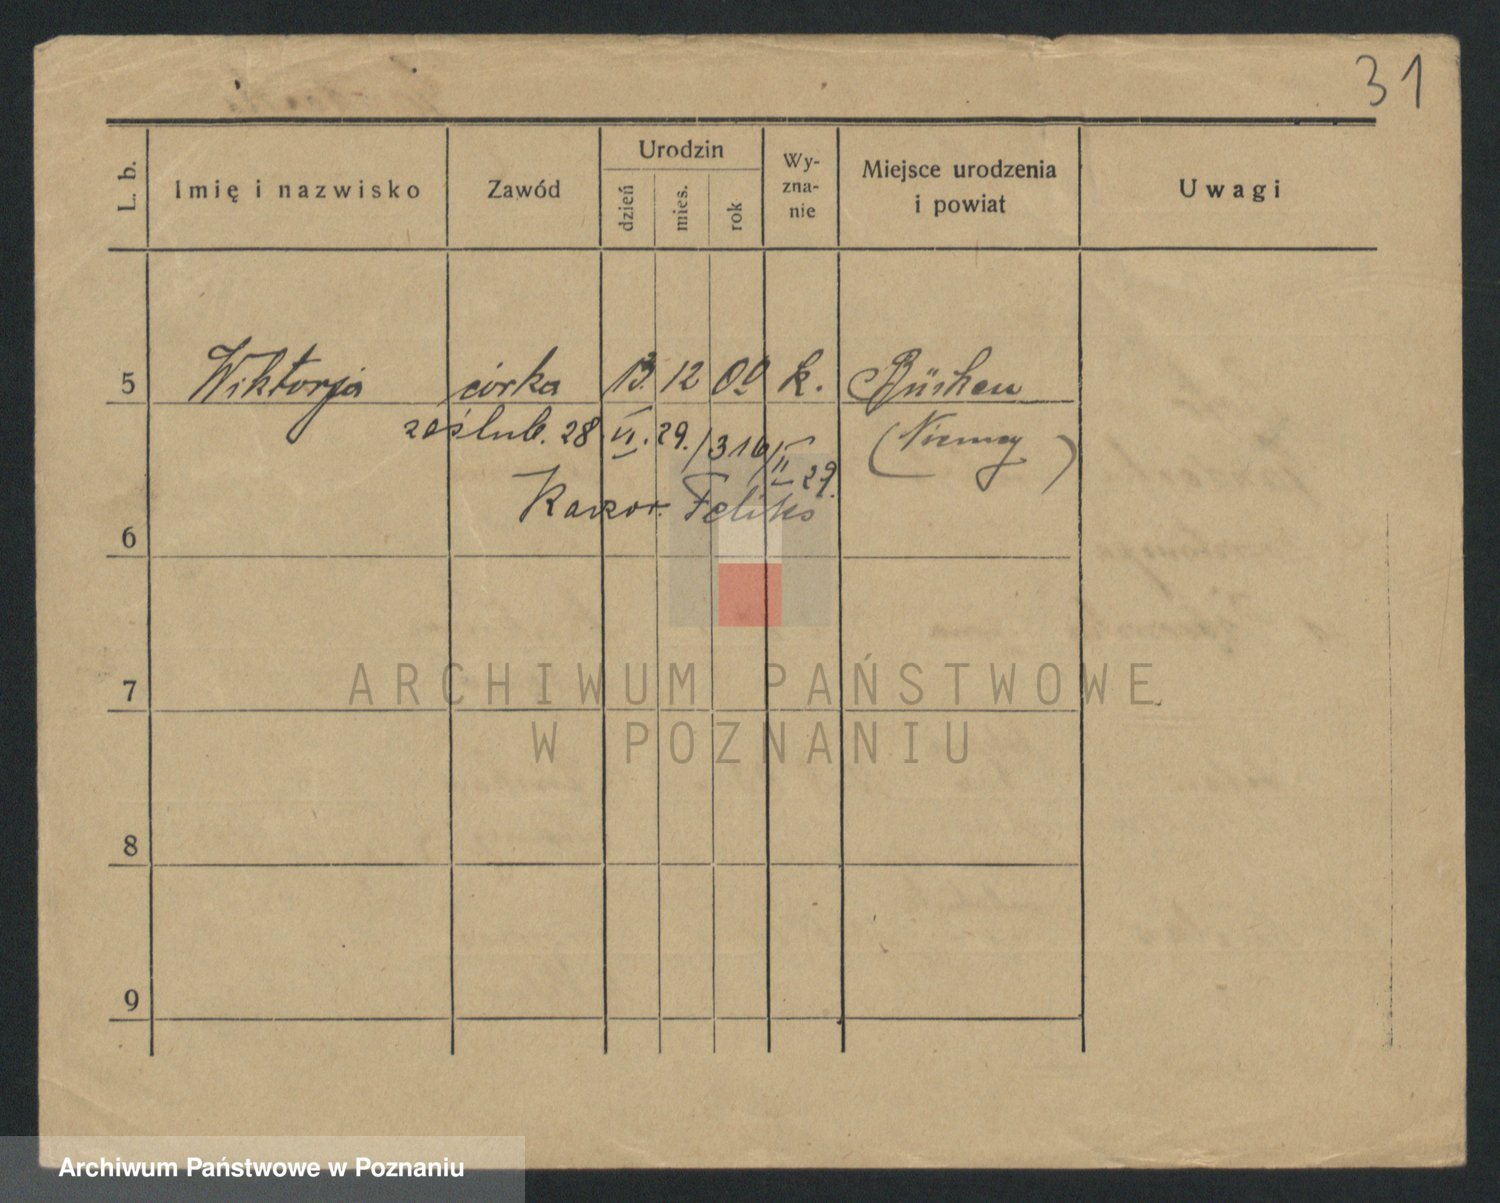 31
L. b.
Imię i nazwisko
Zawód
Urodzin
dzień
mies.
rok
Wy-
zna-
nie
Miejsce urodzenia
i powiat
Uwagi
5 Wiktorja córka 13. 12 00 k. Büchen
zaślub. 28 VI. 29. /316/II 29. (Niemcy)
Feliks
6
7
8
9
ARCHIWUM PAŃSTWOWE
W POZNANIU
Archiwum Państwowe w Poznaniu